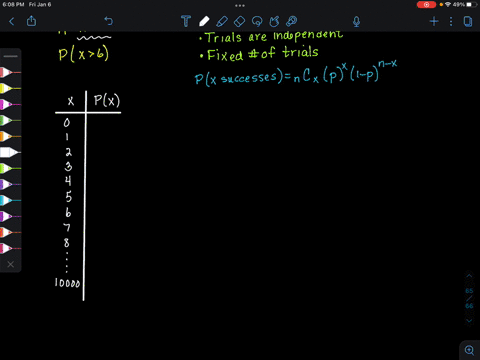 6:08 PM Fri Jan 6
49%
• Trials are independent
P(x>6)
• Fixed # of trials
P(x successes) = nCx (p)^x (1-p)^n-x
x P(x)
0
1
2
3
4
5
6
7
8
:
:
10000
65
/
66